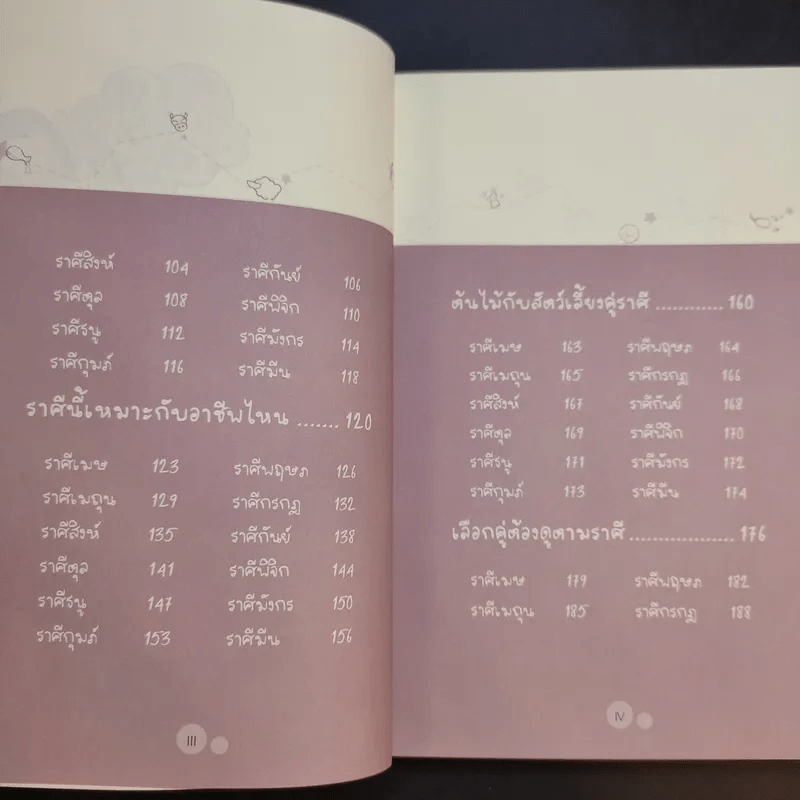 ราศีสิงห์ 104 ราศีกันย์ 106
ราศีตุล 108 ราศีพิจิก 110
ราศีธนู 112 ราศีมังกร 114
ราศีกุมภ์ 116 ราศีมีน 118
ราศีนี้เหมาะกับอาชีพไหน ....... 120
ราศีเมษ 123 ราศีพฤษภ 126
ราศีเมถุน 129 ราศีกรกฎ 132
ราศีสิงห์ 135 ราศีกันย์ 138
ราศีตุล 141 ราศีพิจิก 144
ราศีธนู 147 ราศีมังกร 150
ราศีกุมภ์ 153 ราศีมีน 156
III
ต้นไม้กับสัตว์เลี้ยงคู่ราศี ............ 160
ราศีเมษ 163 ราศีพฤษภ 164
ราศีเมถุน 165 ราศีกรกฎ 166
ราศีสิงห์ 167 ราศีกันย์ 168
ราศีตุล 169 ราศีพิจิก 170
ราศีธนู 171 ราศีมังกร 172
ราศีกุมภ์ 173 ราศีมีน 174
เลือกคู่ต้องดูตามราศี .................. 176
ราศีเมษ 179 ราศีพฤษภ 182
ราศีเมถุน 185 ราศีกรกฎ 188
IV